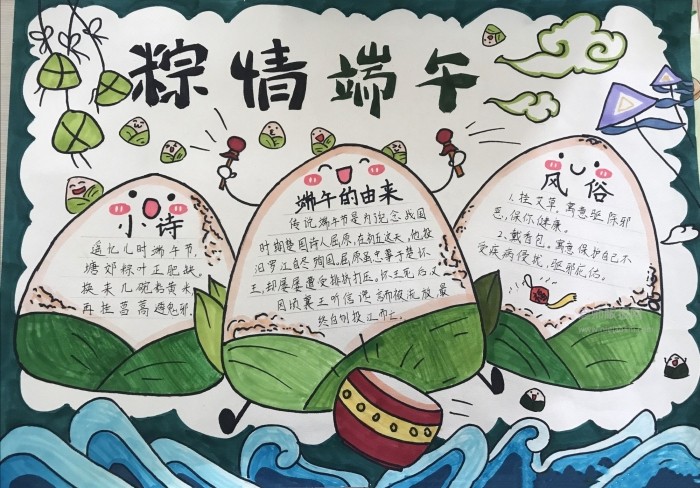 粽情端午
小诗
遥忆儿时端午节,
塘郊粽叶正肥
换来几碗粘黄米
再挂菖蒿 鬼邪.
端午的由来
传说端午节是为记念战国
时期楚国诗人屈原,在初五这天,他投
汨罗江自尽殉国。屈原虽忠事于楚怀
王,却屡屡遭受排挤打压。怀王死后又
因顷襄王听信谗言而被流放,最
终自刎投江而亡。
风俗
1.挂艾草,寓意驱除邪
恶,保你健康。
2.戴香包,寓意保护自己不
受疾病侵扰,驱邪 佑.